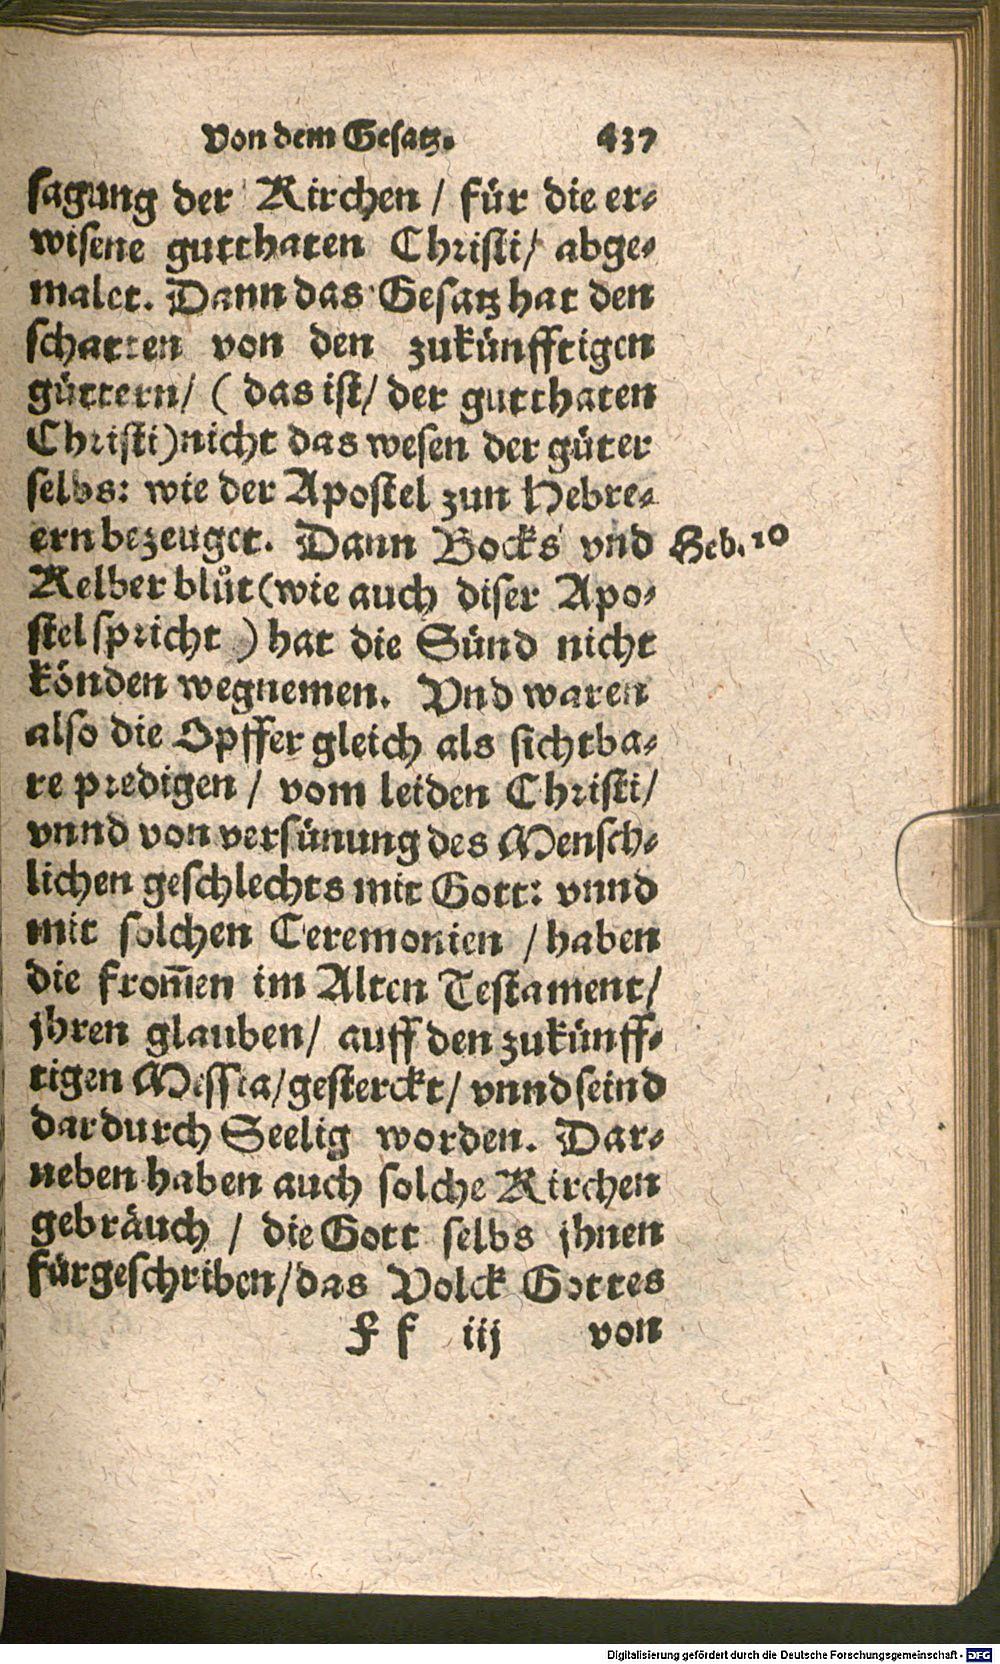 Von dem Gesatz. 437
sagung der Kirchen / für die er-
wisene gutthaten Christi / abge-
malet. Dann das Gesatz hat den
schatten von den zukünfftigen
güttern / ( das ist / der gutthaten
Christi) nicht das wesen der güter
selbs: wie der Apostel zun Hebre-
ern bezeuget. Dann Bocks vnd
Heb. 10
Kelber blůt (wie auch diser Apo-
stel spricht ) hat die Sünd nicht
könden wegnemen. Vnd waren
also die Opffer gleich als sichtba-
re predigen / vom leiden Christi /
vnnd von versünung des Mensch-
lichen geschlechts mit Gott: vnnd
mit solchen Ceremonien / haben
die from̄en im Alten Testament /
jhren glauben / auff den zukünff-
tigen Messia / gesterckt / vnnd seind
dardurch Seelig worden. Dar-
neben haben auch solche Kirchen
gebräuch / die Gott selbs jhnen
fürgeschriben / das Volck Gottes
F f iij von
Digitalisierung gefördert durch die Deutsche Forschungsgemeinschaft - DFG